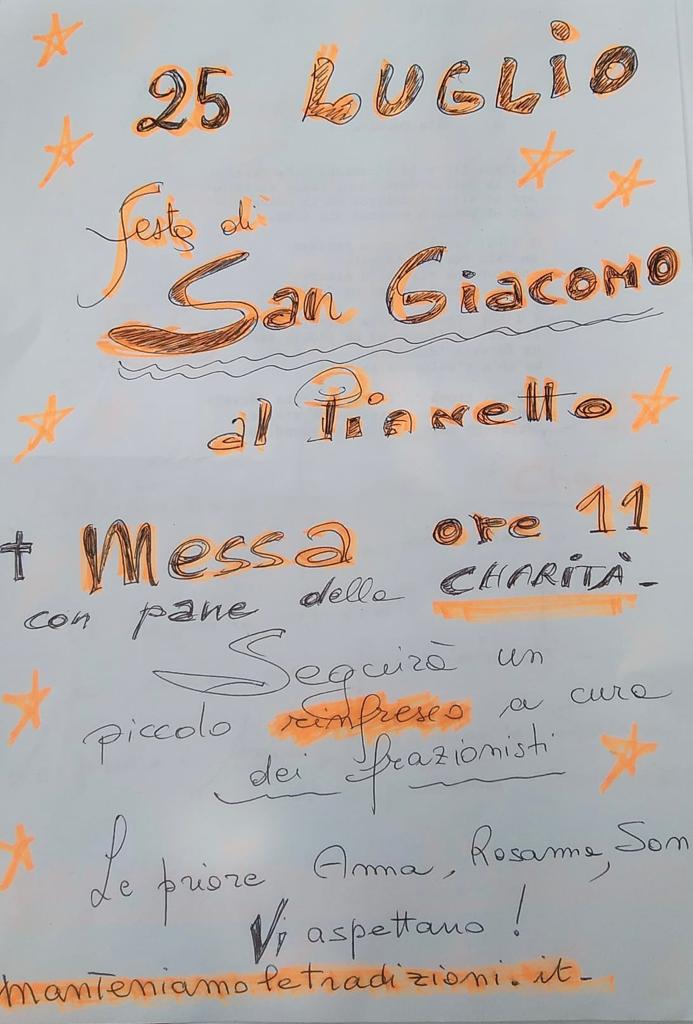 25 LUGLIO
festa di
San Giacomo
al Pianetto
† Messa ore 11
con pane della CHARITÀ -
Seguirà un
piccolo rinfresco a cura
dei frazionisti
Le priore Anna, Rosanna, Son
Vi aspettano!
manteniamoletradizioni.it -